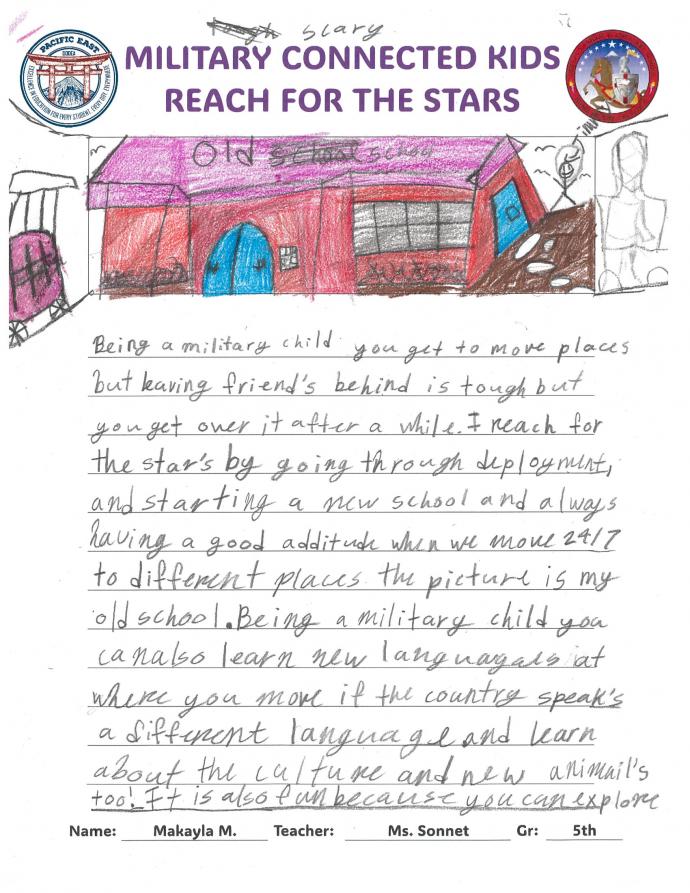 scary
PACIFIC EAST
DODEA
EXCELLENCE IN EDUCATION FOR EVERY STUDENT, EVERY DAY, EVERYWHERE
MILITARY CONNECTED KIDS
REACH FOR THE STARS
Old school school
Being a military child you get to move places
but leaving friend's behind is tough but
you get over it after a while. I reach for
the star's by going through deployment,
and starting a new school and always
having a good additude when we move 24/7
to different places the picture is my
old school. Being a military child you
can also learn new languagals at
where you move if the country speak's
a different language and learn
about the culture and new animail's
too! It is also fun because you can explore
Name: Makayla M. Teacher: Ms. Sonnet Gr: 5th